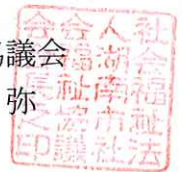 協議会
弥
社会福祉法
人湖南市社
会福祉協議
会長之印